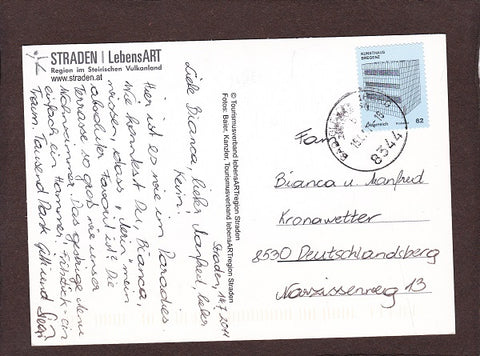 STRADEN | LebensART
Region im Steirischen Vulkanland
www.straden.at
© Tourismusverband lebensARTregion Straden
Fotos: Baier, Kanzlor, Tourismusverband lebensARTregion Straden
Straden, 14.7.2011
Liebe Bianca, lieber Manfred, lieber
Kevin
Hier ist es wie im Paradies.
Wie könntest Du, Bianca,
wissen, dass mein
absoluter Favorit ist? Die
Terrasse so groß wie unser
Wohnzimmer. Das gestrige
einfach ein Hammer, Frühstück - ein
Traum. Tausend Dank Gitti und
KUNSTHAUS
BREGENZ
Österreich
62
8344
Fam.
Bianca u. Manfred
Kronawetter
8530 Deutschlandsberg
Narzissenweg 13